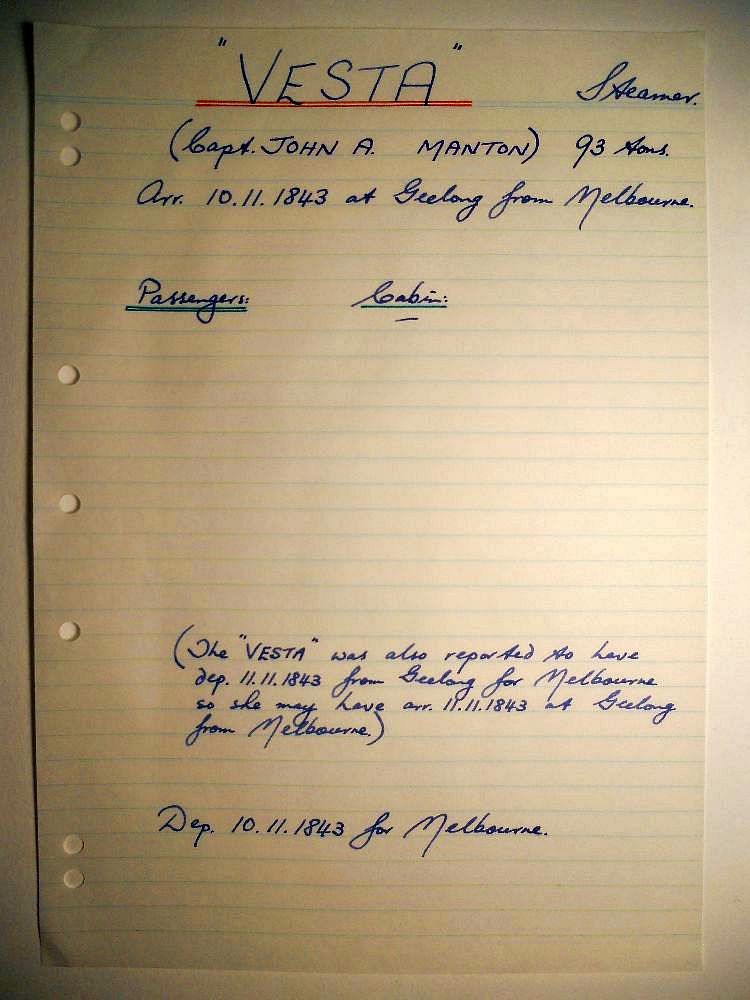 "VESTA" Steamer.
(Capt. JOHN A. MANTON) 93 tons.
Arr. 10.11.1843 at Geelong from Melbourne.
Passengers: Cabin:
—
(The "VESTA" was also reported to have
dep. 11.11.1843 from Geelong for Melbourne
so she may have arr. 11.11.1843 at Geelong
from Melbourne.)
Dep. 10.11.1843 for Melbourne.